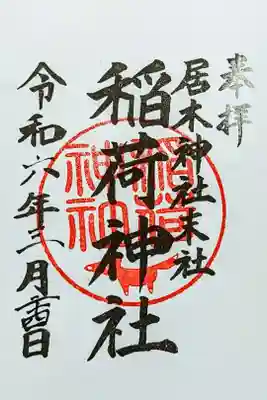 奉拝
居木神社末社
稲荷神社
令和六年月酉日
稲荷
神社